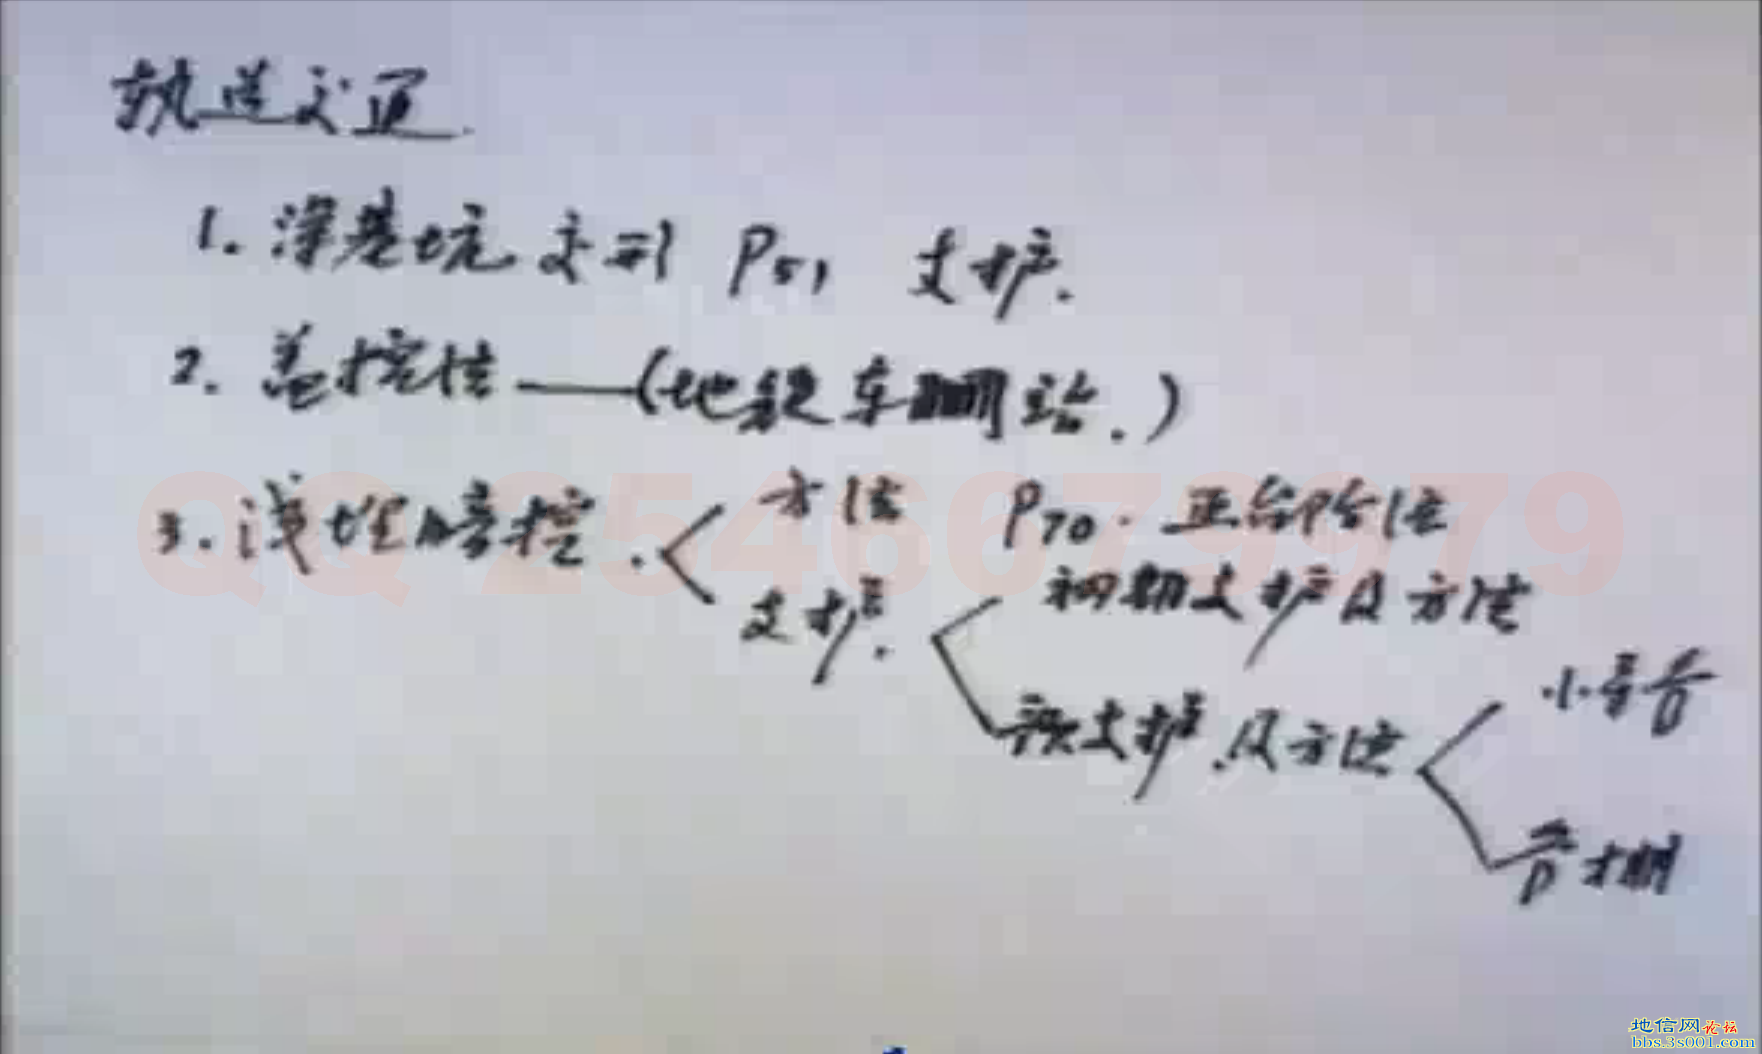 轨道交通
1. 深基坑 变形 P51 支护.
2. 盖挖法——(地铁车站.)
3. 浅埋暗挖. 方法 P70. 正台阶法
支护. 初期支护及方法
预支护.及方法 小导管
管棚
QQ 2546679979
地信网论坛
bbs.3s001.com